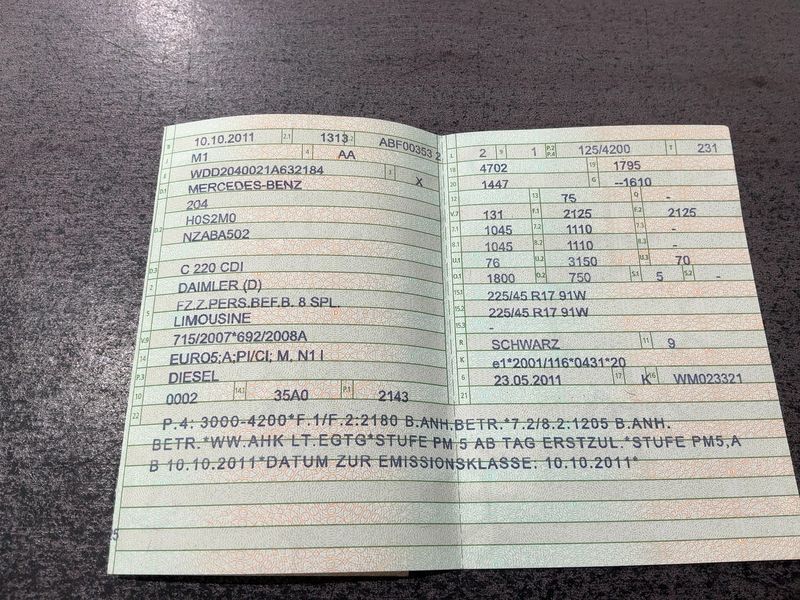 B 10.10.2011 2.1 1313 2.2 ABF00353 2
J M1 4 AA
E WDD2040021A632184 3 X
D.1 MERCEDES-BENZ
204
D.2 H0S2M0
NZABA502
D.3 C 220 CDI
2 DAIMLER (D)
5 FZ.Z.PERS.BEF.B. 8 SPL.
LIMOUSINE
V.9 715/2007*692/2008A
14 EURO5;A;PI/CI; M, N1 I
P.3 DIESEL
10 0002 14.1 35A0 P.1 2143
L 2 9 1 P.2 P.4 125/4200 T 231
18 4702 19 1795
20 1447 G --1610
12 - 13 75 Q -
V.7 131 F.1 2125 F.2 2125
7.1 1045 7.2 1110 7.3 -
8.1 1045 8.2 1110 8.3 -
U.1 76 U.2 3150 U.3 70
O.1 1800 O.2 750 S.1 5 S.2 -
15.1 225/45 R17 91W
15.2 225/45 R17 91W
15.3 -
R SCHWARZ 11 9
K e1*2001/116*0431*20
6 23.05.2011 17 K 16 WM023321
21
22 P.4: 3000-4200*F.1/F.2:2180 B.ANH.BETR.*7.2/8.2:1205 B.ANH.
BETR.*WW.AHK LT.EGTG*STUFE PM 5 AB TAG ERSTZUL.*STUFE PM5,A
B 10.10.2011*DATUM ZUR EMISSIONSKLASSE: 10.10.2011*